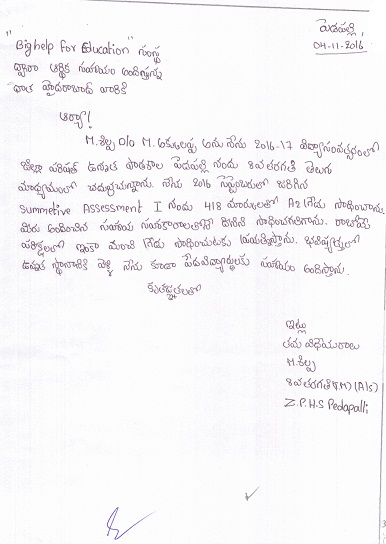 పెదపల్లి,
04-11-2016.
"Bighelp for Education" సంస్థ
ద్వారా ఆర్థిక సహాయం అందిస్తున్న
దాత హైదరాబాద్ వారికి
ఆర్యా!
M.శిల్ప D/o M. అక్కులప్ప అను నేను 2016-17 విద్యాసంవత్సరంలో
జిల్లా పరిషత్ ఉన్నత పాఠశాల పెదపల్లి నందు 8వతరగతి తెలుగు
మాధ్యమంలో చదువుచున్నాను. నేను 2016 సెప్టెంబరులో జరిగిన
Summetive Assessment I నందు 418 మార్కులతో A2 గ్రేడు సాధించాను.
మీరు అందించిన సహాయ సహకారాలతోనే దీనిని సాధించగలిగాను. రాబోయే
పరీక్షలలో ఇంకా మంచి గ్రేడు సాధించుటకు ప్రయత్నిస్తాను. భవిష్యత్తులో
ఉన్నత స్థానానికి వెళ్ళి నేను కూడా పేదవిద్యార్థులకు సహాయం అందిస్తాను.
కృతజ్ఞతలతో
ఇట్లు
తమ విధేయురాలు
M.శిల్ప
8వ తరగతి (TM) (A/S)
Z.P.H.S Pedapalli